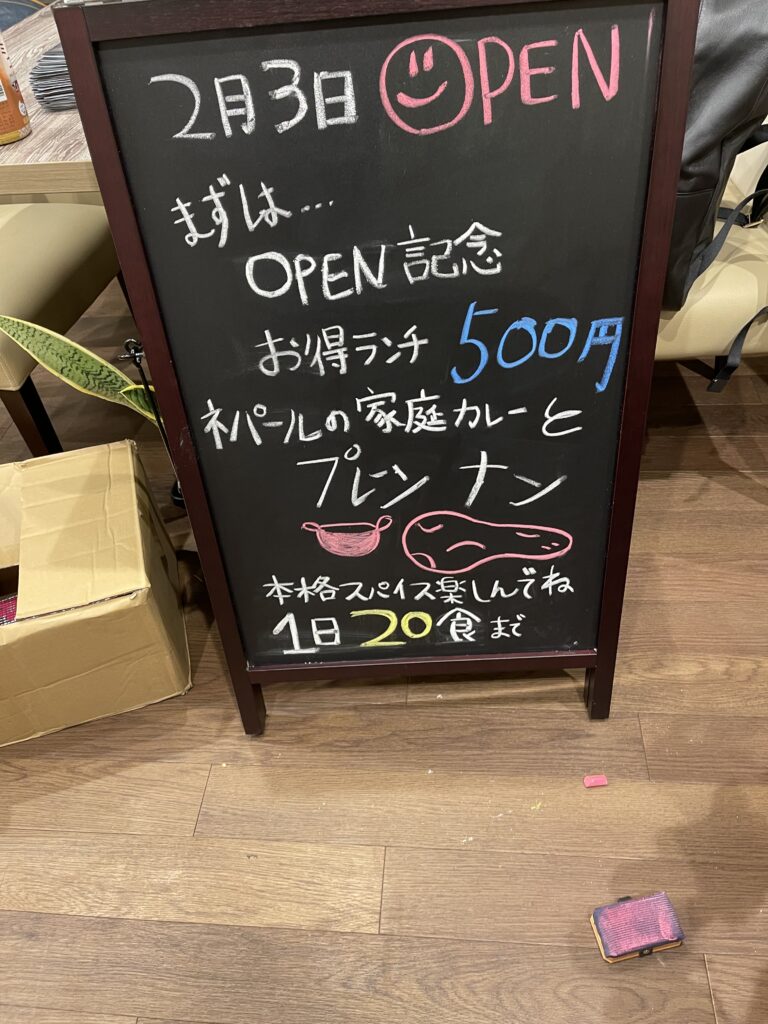 2月3日 OPEN!
まずは…
OPEN記念
お得ランチ 500円
ネパールの家庭カレーと
プレーン ナン
本格スパイス楽しんでね
1日20食まで